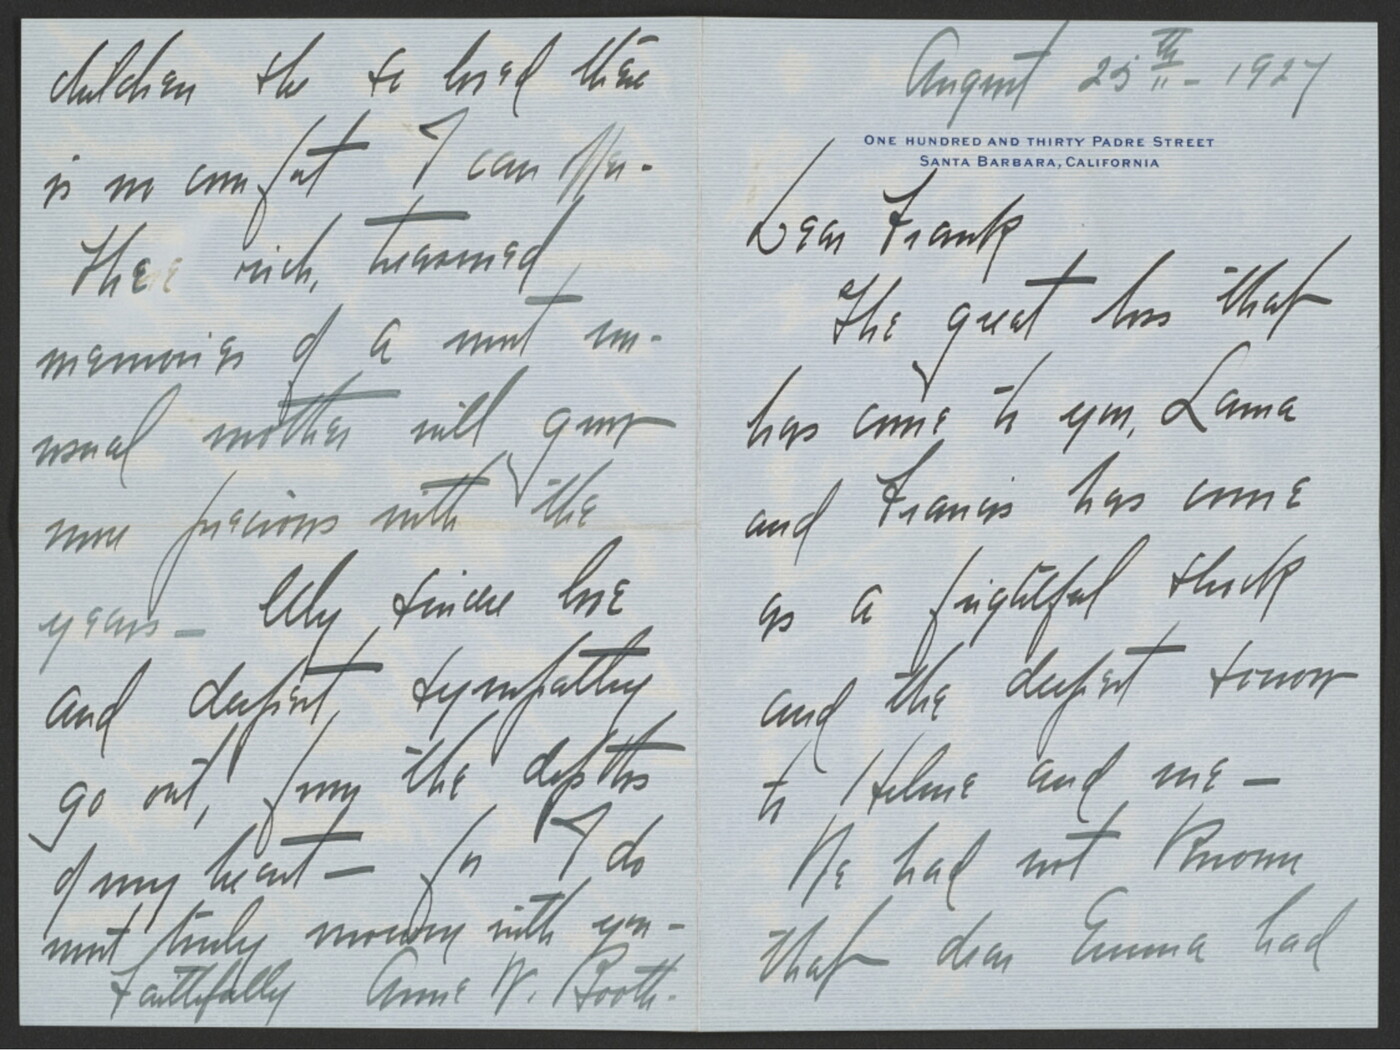 August 25th - 1927
ONE HUNDRED AND THIRTY PADRE STREET
SANTA BARBARA, CALIFORNIA
Dear Frank
The great loss that
has come to you, Lama
and Francis has come
as a frightful shock
and the deepest sorrow
to and me —
We had not known
that dear Emma had
children she so loved there
is no comfort I can offer -
These rich, treasured
memories of a most un-
usual mother will grow
more precious with the
years — My sincere love
and deepest sympathy
go out, from the depths
of my heart — for I do
most truly mourn with you -
Faithfully Anne W. Booth.